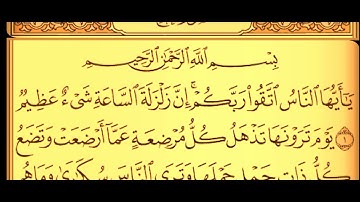 بِسْمِ اللَّهِ الرَّحْمَٰنِ الرَّحِيمِ
يَٰٓأَيُّهَا النَّاسُ اتَّقُوا رَبَّكُمْ ۚ إِنَّ زَلْزَلَةَ السَّاعَةِ شَىْءٌ عَظِيمٌ
١ يَوْمَ تَرَوْنَهَا تَذْهَلُ كُلُّ مُرْضِعَةٍ عَمَّآ أَرْضَعَتْ وَتَضَعُ
كُلُّ ذَاتِ حَمْلٍ حَمْلَهَا وَتَرَى النَّاسَ سُكَٰرَىٰ وَمَا هُم